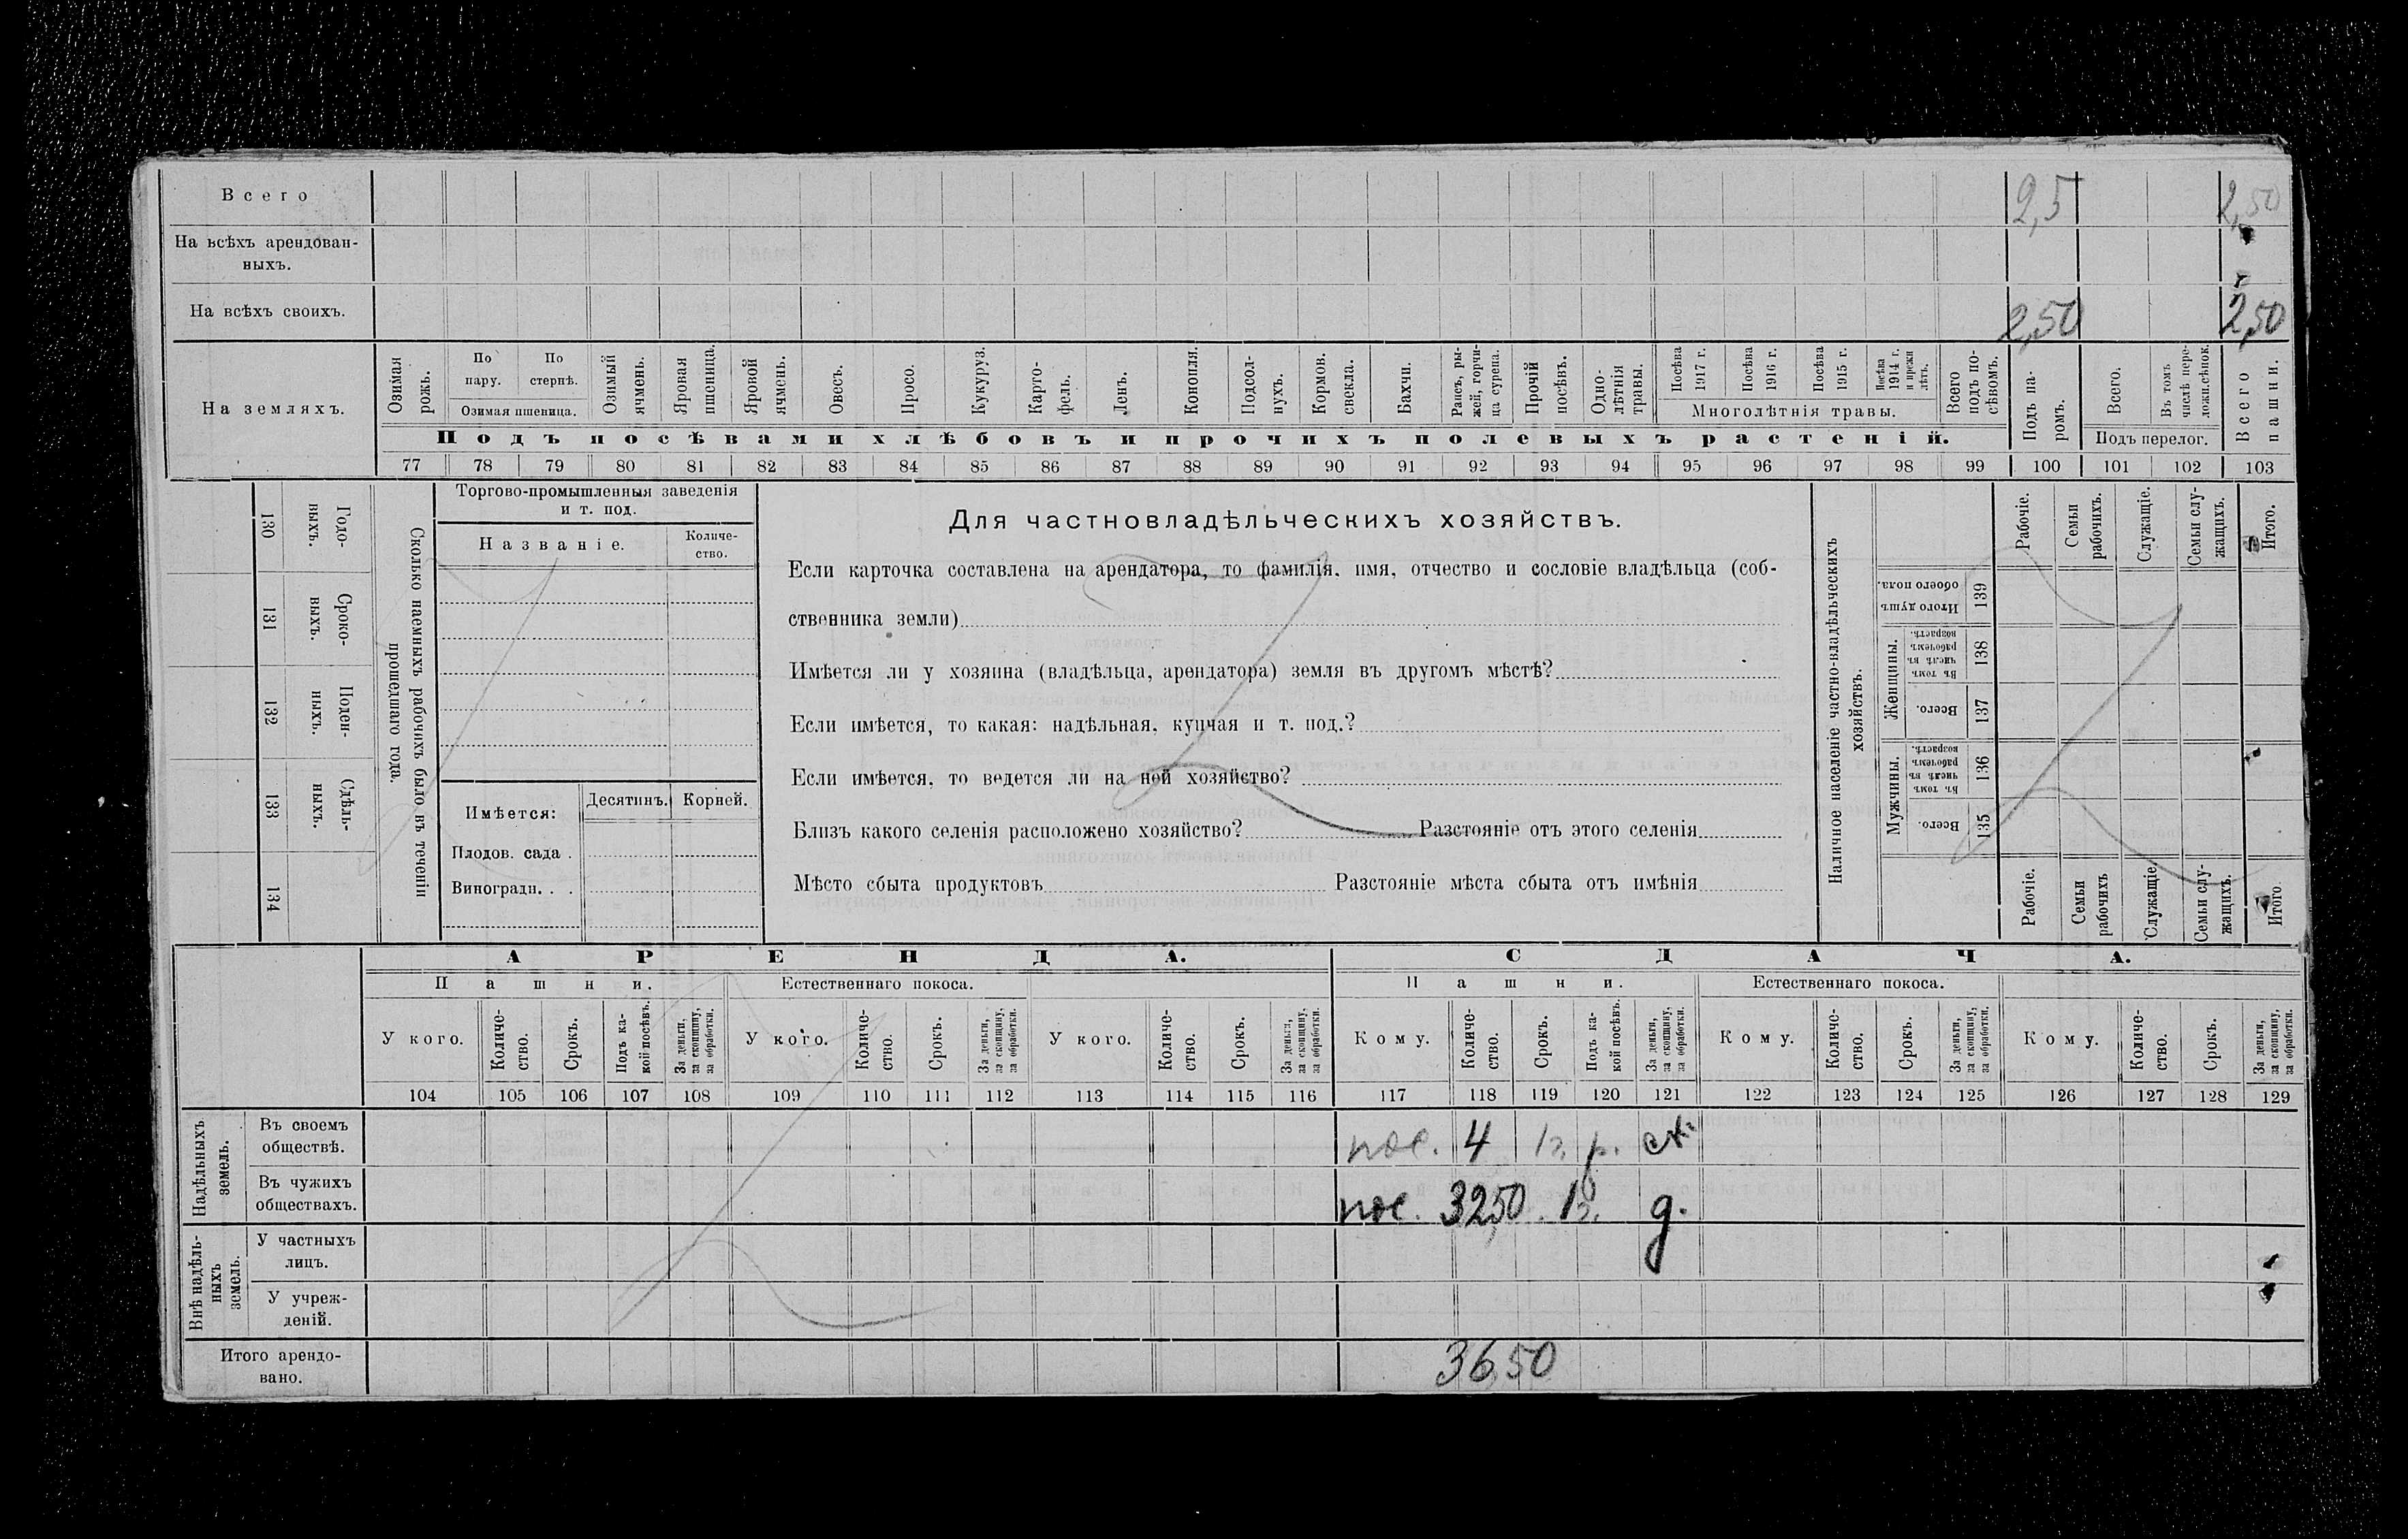 Всего 2,5 2,50
На всѣхъ арендован-
ныхъ.
На всѣхъ своихъ. 2,50 2,50
На земляхъ.
Озимая рожь.
По пару.
По стернѣ.
Озимая пшеница.
Озимый ячмень.
Яровая пшеница.
Яровой ячмень.
Овесъ.
Просо.
Кукуруз.
Карто-
фель.
Ленъ.
Конопля.
Подсол-
нухъ.
Кормов. свекла.
Бахчи.
Рапсъ, ры-
жей, горчи-
ца сурепа.
Прочій посѣвъ.
Одно-
лѣтнія травы.
Посѣва 1917 г.
Посѣва 1916 г.
Посѣва 1915 г.
Посѣва 1914 г. и прежн лѣтъ.
Многолѣтнія травы.
Всего подъ по-
сѣвомъ.
Подъ па-
ромъ.
Всего.
Въ томъ числѣ пере-
ложн.сѣнок.
Подъ перелог.
Всего пашни.
Подъ посѣвами хлѣбовъ и прочихъ полевыхъ растеній.
77 78 79 80 81 82 83 84 85 86 87 88 89 90 91 92 93 94 95 96 97 98 99 100 101 102 103
130 Годо-
выхъ.
131 Сроко-
выхъ.
132 Поден-
ныхъ.
133 Сдѣль-
ныхъ.
134
Сколько наемныхъ рабочихъ было въ теченіи
прошедшаго года.
Торгово-промышленныя заведенія
и т. под.
Названіе.
Количе-
ство.
Имѣется: Десятинъ. Корней.
Плодов. сада .
Виноградн. . .
Для частновладѣльческихъ хозяйствъ.
Если карточка составлена на арендатора, то фамилія, имя, отчество и сословіе владѣльца (соб-
ственника земли)
Имѣется ли у хозяина (владѣльца, арендатора) земля въ другомъ мѣстѣ?
Если имѣется, то какая: надѣльная, купчая и т. под.?
Если имѣется, то ведется ли на ней хозяйство?
Близъ какого селенія расположено хозяйство? Разстояніе отъ этого селенія
Мѣсто сбыта продуктовъ Разстояніе мѣста сбыта отъ имѣнія
Наличное населеніе частно-владѣльческихъ
хозяйствъ.
Рабочіе.
Семьи рабочихъ.
Служащіе.
Семьи слу-
жащихъ.
Итого.
Итого душъ обоего пола. 139
Женщины.
Въ томъ числѣ въ рабочемъ возрастѣ. 138
Всего. 137
Мужчины.
Въ томъ числѣ въ рабочемъ возрастѣ. 136
Всего. 135
Рабочіе.
Семьи рабочихъ
Служащіе.
Семьи слу-
жащихъ.
Итого
АРЕНДА. СДАЧА.
Пашни. Естественнаго покоса. Пашни. Естественнаго покоса.
У кого.
Количе-
ство.
Срокъ.
Подъ ка-
кой посѣвъ.
За деньги,
за скопщину,
за обработки.
У кого.
Количе-
ство.
Срокъ.
За деньги,
за скопщину,
за обработки.
У кого.
Количе-
ство.
Срокъ.
За деньги,
за скопщину,
за обработки.
Кому.
Количе-
ство.
Срокъ.
Подъ ка-
кой посѣвъ.
За деньги,
за скопщину,
за обработки.
Кому.
Количе-
ство.
Срокъ.
За деньги,
за скопщину,
за обработки.
Кому.
Количе-
ство.
Срокъ.
За деньги,
за скопщину,
за обработки.
104 105 106 107 108 109 110 111 112 113 114 115 116 117 118 119 120 121 122 123 124 125 126 127 128 129
Надѣльныхъ земель.
Въ своемъ
обществѣ. пос. 4 1г. р. ск.
Въ чужихъ
обществахъ. пос. 32,50 1г. д.
Внѣ надѣль-
ныхъ
земель.
У частныхъ
лицъ.
У учреж-
деній.
Итого арендо-
вано. 36,50